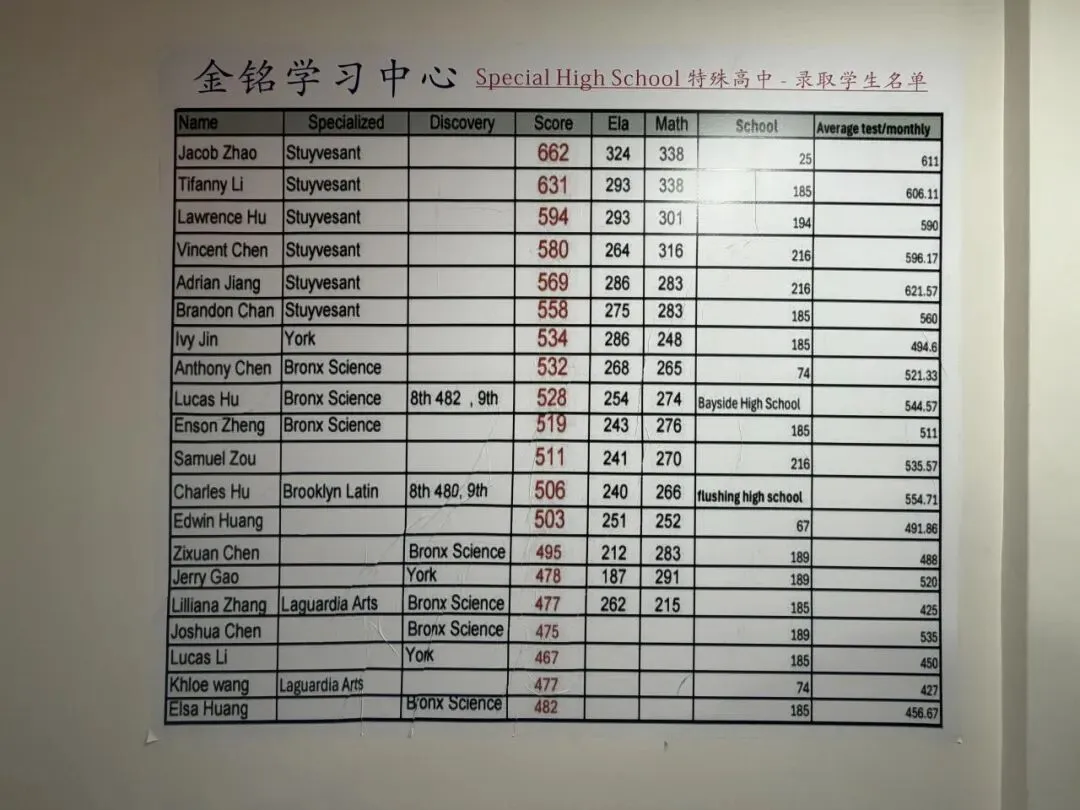 金铭学习中心 Special High School 特殊高中 - 录取学生名单
Name Specialized Discovery Score Ela Math School Average test/monthly
Jacob Zhao Stuyvesant 662 324 338 25 611
Tifanny Li Stuyvesant 631 293 338 185 606.11
Lawrence Hu Stuyvesant 594 293 301 194 590
Vincent Chen Stuyvesant 580 264 316 216 596.17
Adrian Jiang Stuyvesant 569 286 283 216 621.57
Brandon Chan Stuyvesant 558 275 283 185 560
Ivy Jin York 534 286 248 185 494.6
Anthony Chen Bronx Science 532 268 265 74 521.33
Lucas Hu Bronx Science 8th 482 , 9th 528 254 274 Bayside High School 544.57
Enson Zheng Bronx Science 519 243 276 185 511
Samuel Zou 511 241 270 216 535.57
Charles Hu Brooklyn Latin 8th 480, 9th 506 240 266 flushing high school 554.71
Edwin Huang 503 251 252 67 491.86
Zixuan Chen Bronx Science 495 212 283 189 488
Jerry Gao York 478 187 291 189 520
Lilliana Zhang Laguardia Arts Bronx Science 477 262 215 185 425
Joshua Chen Bronx Science 475 189 535
Lucas Li York 467 185 450
Khloe wang Laguardia Arts 477 74 427
Elsa Huang Bronx Science 482 185 456.67